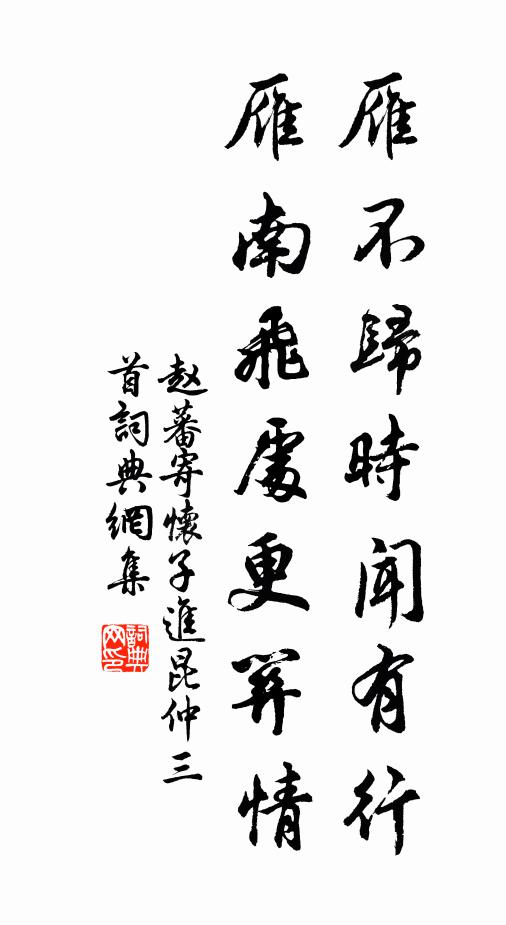 雁不歸時聞有行
雁南飛處更關情
赵蕃寄懷子進昆仲三
首詞典網集
詞典
网印